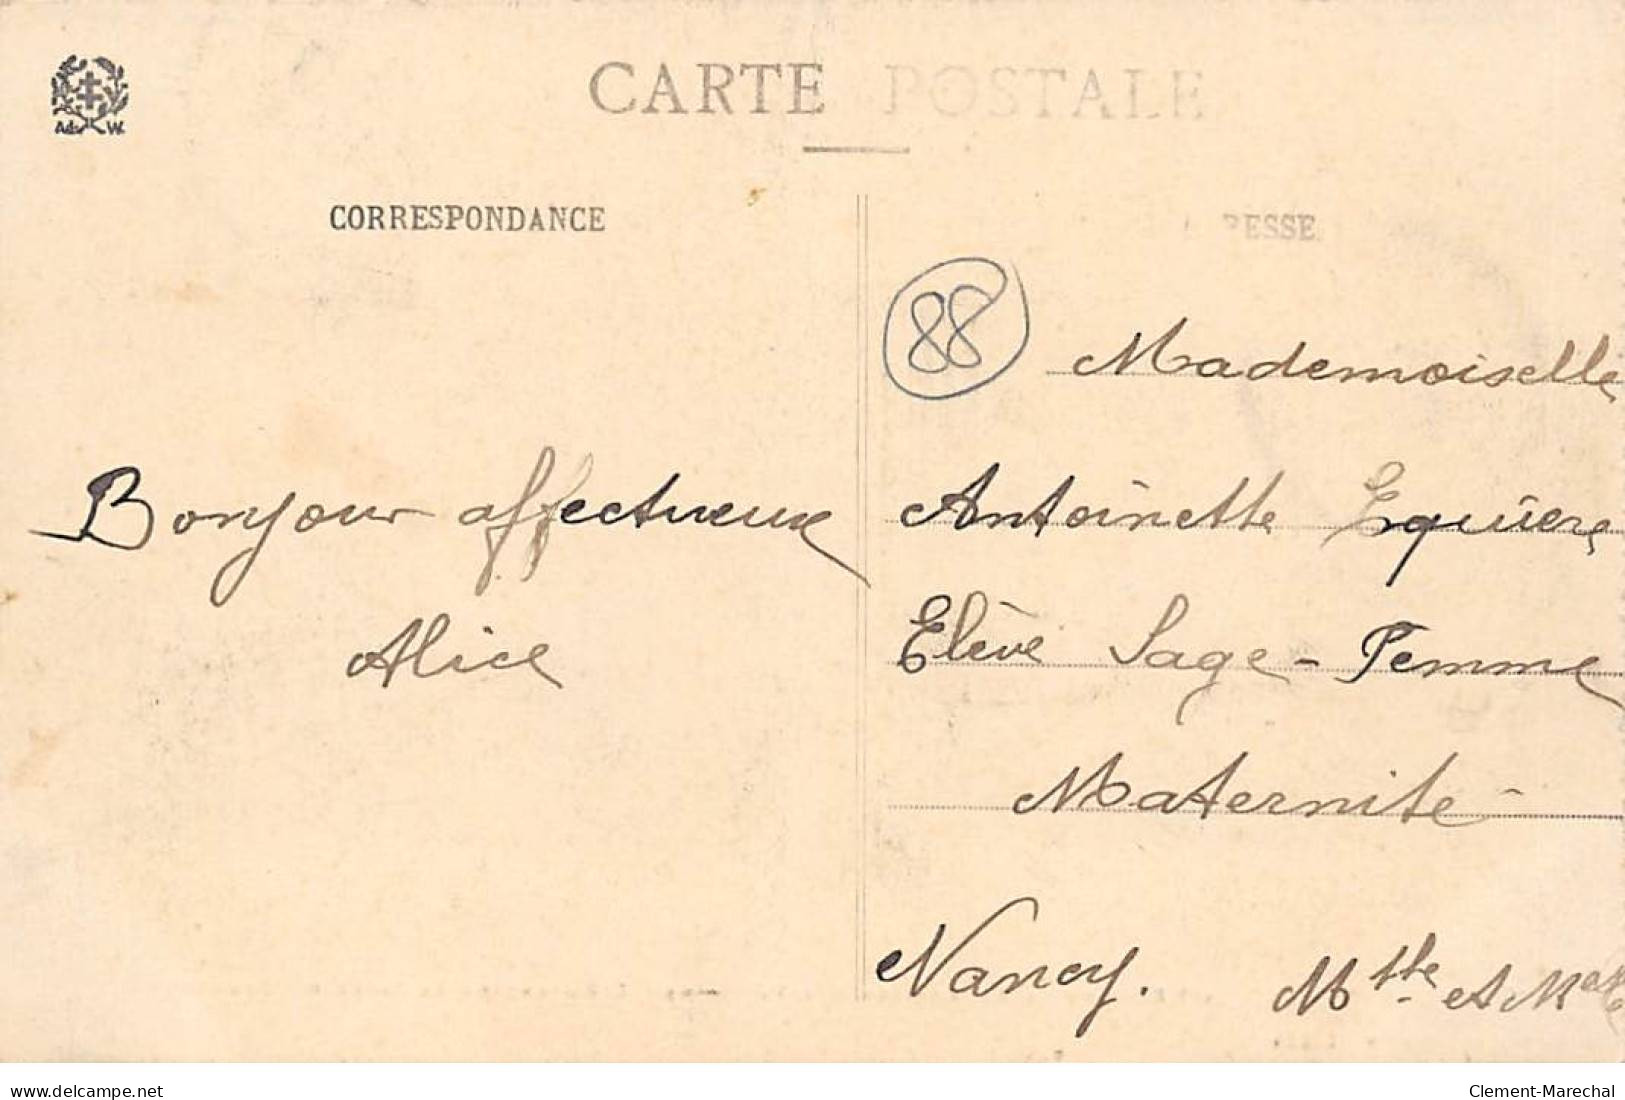 Ad. W.
CARTE POSTALE
CORRESPONDANCE
RESSE
88
Mademoiselle
Bonjour affectueux
Antoinette Equiere
Alice
Elève Sage-Femme
Maternité
Nancy. Mthe et Mlle
delcampe.net
Clement-Marechal